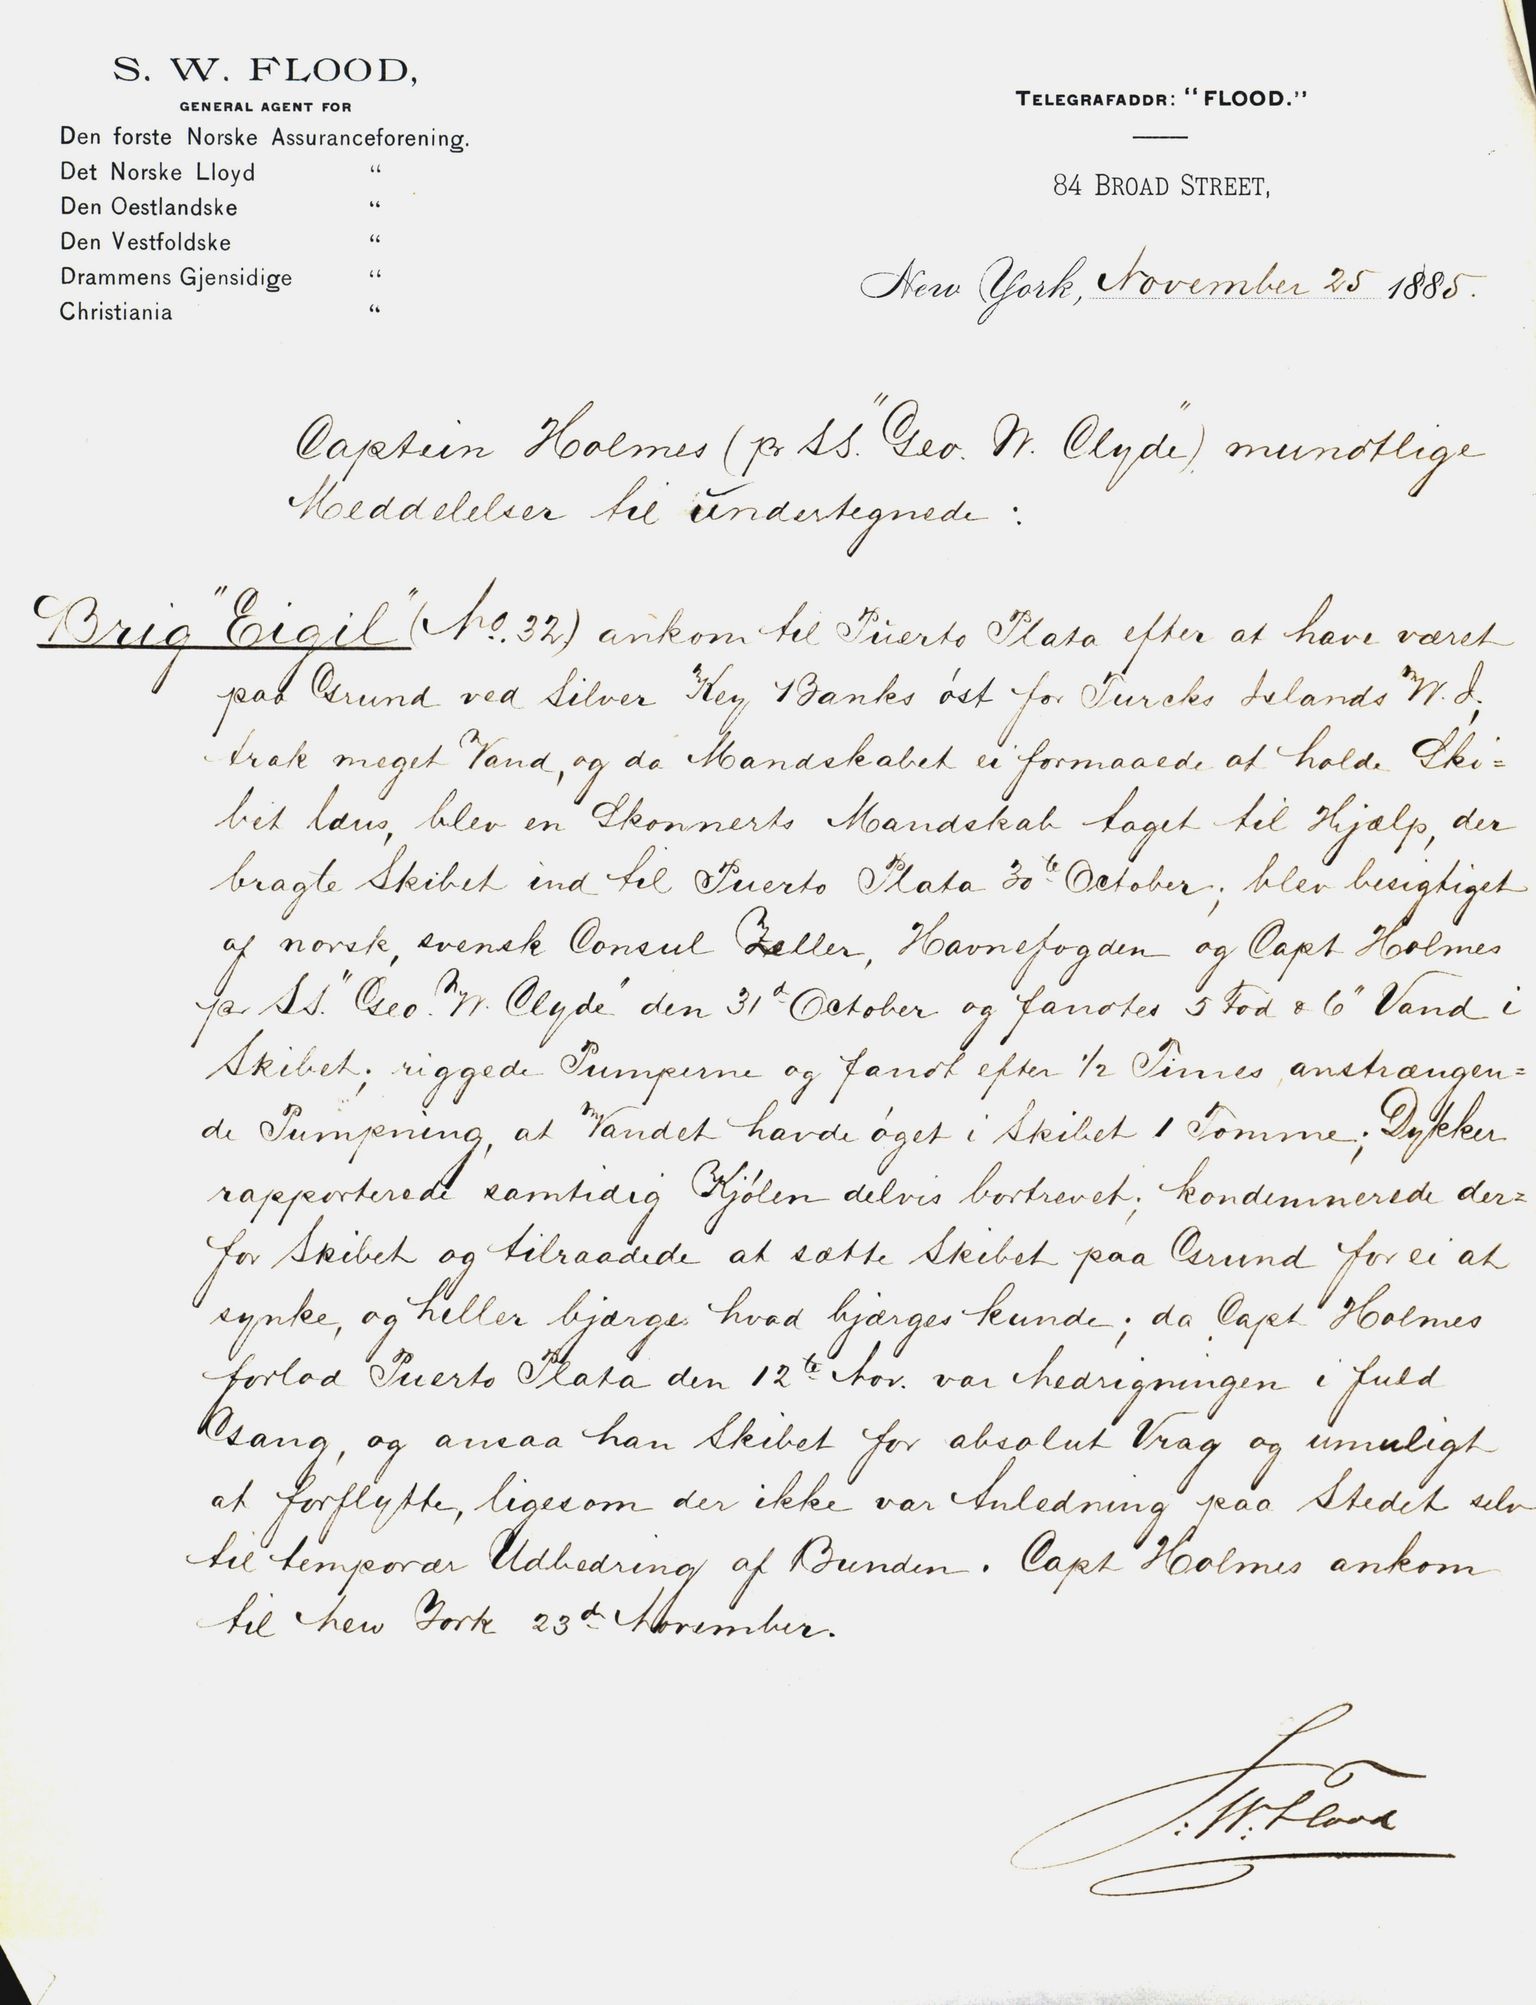 S. W. FLOOD,
GENERAL AGENT FOR
Den forste Norske Assuranceforening.
Det Norske Lloyd "
Den Oestlandske "
Den Vestfoldske "
Drammens Gjensidige "
Christiania "
TELEGRAFADDR: "FLOOD."
84 BROAD STREET,
New York, November 25 1885.
Captein Holmes (pr SS. "Geo. W. Clyde") mundtlige
Meddelelser til undertegnede:
Brig "Eigil" (No. 32) ankom til Puerto Plata efter at have været
paa Grund ved Silver Key Banks öst for Turcks Islands W. I.,
trak meget Vand, og da Mandskabet ei formaaede at holde Ski=
bet læns, blev en Skonnerts Mandskab taget til Hjælp, der
bragte Skibet ind til Puerto Plata 30te October; blev besigtiget
af norsk, svensk Consul Zeller, Havnefogden og Capt Holmes
pr SS. "Geo. W. Clyde" den 31d October og fandtes 5 Fod & 6" Vand i
Skibet; riggede Pumperne og fandt efter 1/2 Times anstrængen=
de Pumpning, at Vandet havde öget i Skibet 1 Tomme; Dykker
rapporterede samtidig Kjölen delvis bortrevet; kondemnerede der=
for Skibet og tilraadede at sætte Skibet paa Grund for ei at
synke, og heller bjærge hvad bjærges kunde; da Capt Holmes
forlod Puerto Plata den 12te Nov. var Nedrigningen i fuld
Gang, og ansaa han Skibet for absolut Vrag og umuligt
at forflytte, ligesom der ikke var Anledning paa Stedet selv
til temporær Udbedring af Bunden. Capt Holmes ankom
til New York 23d November.
S. W. Flood